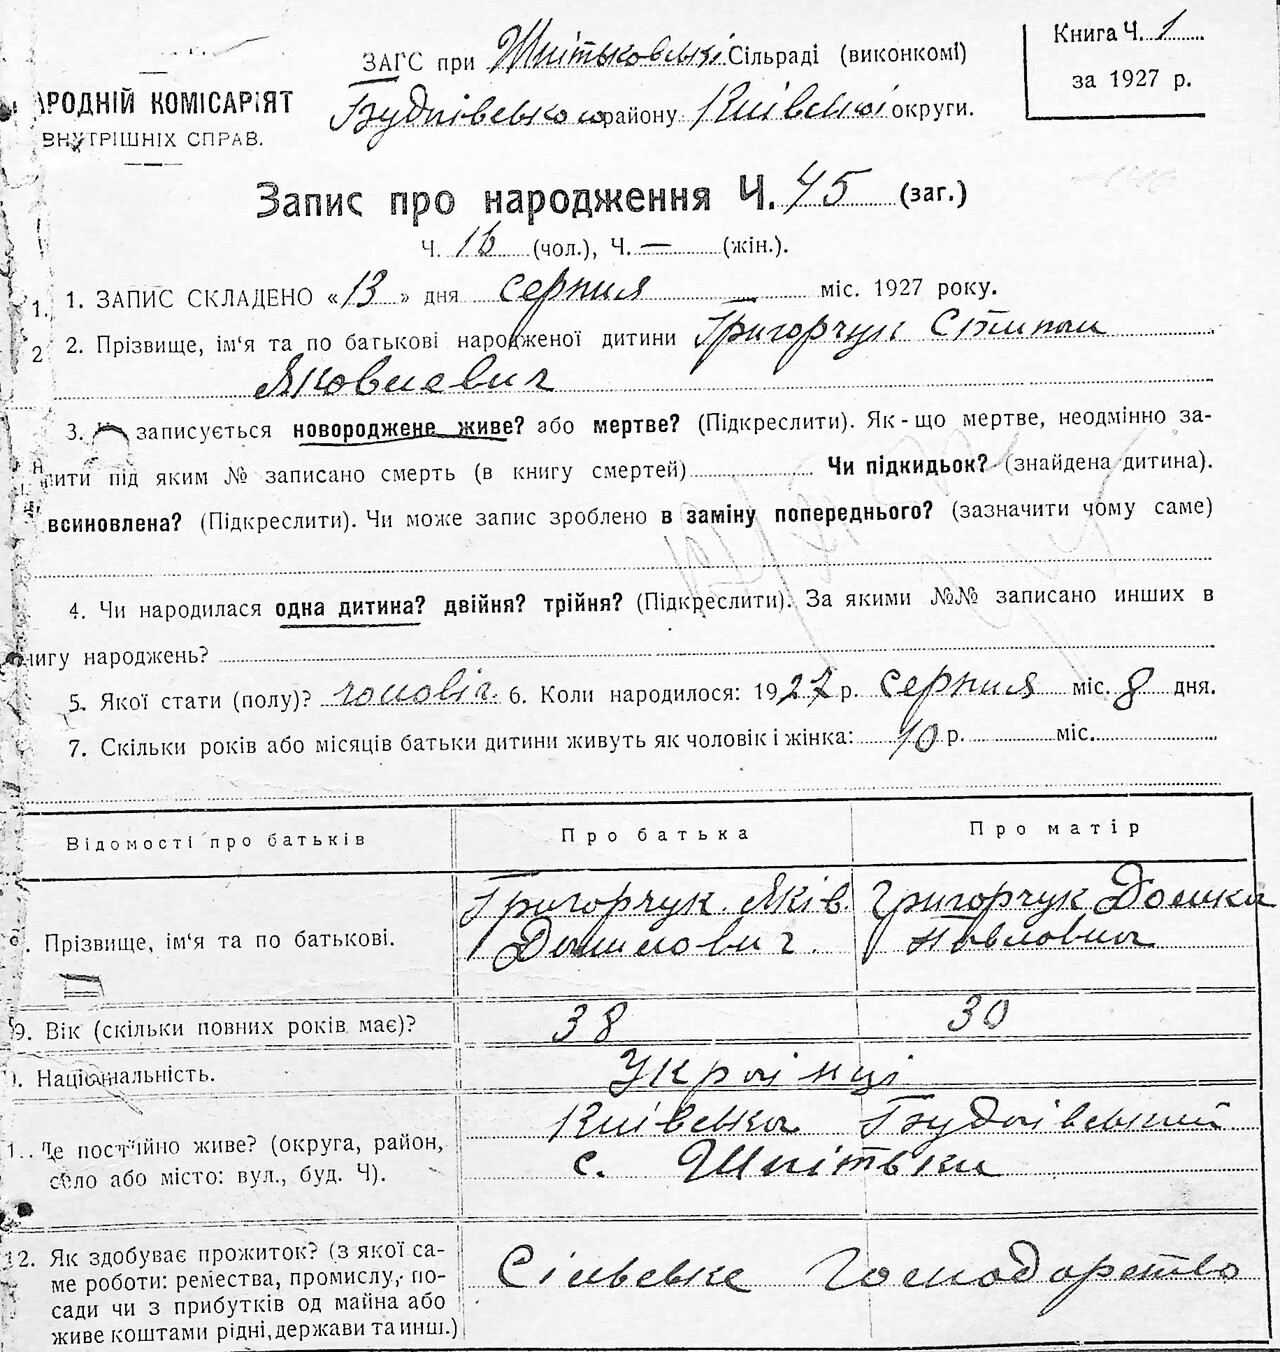 ЗАГС при Шпітьковські Сільраді (виконкомі)
Будаївського району Київської округи.
Книга Ч. 1
за 1927 р.
АРОДНІЙ КОМІСАРІЯТ
ВНУТРІШНІХ СПРАВ.
Запис про народження Ч. 45 (заг.)
Ч. 16 (чол.), Ч. — (жін.).
1. 1. ЗАПИС СКЛАДЕНО «13» дня серпня міс. 1927 року.
2 2. Прізвище, ім'я та по батькові народженої дитини Григорчук Степан
Яковлевич
3. записується новороджене живе? або мертве? (Підкреслити). Як-що мертве, неодмінно за-
нити під яким № записано смерть (в книгу смертей) Чи підкидьок? (знайдена дитина).
всиновлена? (Підкреслити). Чи може запис зроблено в заміну попереднього? (зазначити чому саме)
4. Чи народилася одна дитина? двійня? трійня? (Підкреслити). За якими №№ записано инших в
нигу народжень?
5. Якої стати (полу)? чоловіч. 6. Коли народилося: 1927 р. серпня міс. 8 дня.
7. Скільки років або місяців батьки дитини живуть як чоловік і жінка: 10 р. міс.
Відомості про батьків Про батька Про матір
Григорчук Яків Григорчук Домка
8. Прізвище, ім'я та по батькові. Данилович Павловна
9. Вік (скільки повних років має)? 38 30
). Національність. Українці
Київська Будаївський
1. Де постійно живе? (округа, район,
село або місто: вул., буд. Ч). с. Шпітьки
12. Як здобуває прожиток? (з якої са-
ме роботи: ремества, промислу, по- Сільське Господарство
сади чи з прибутків од майна або
живе коштами рідні, держави та инш.)